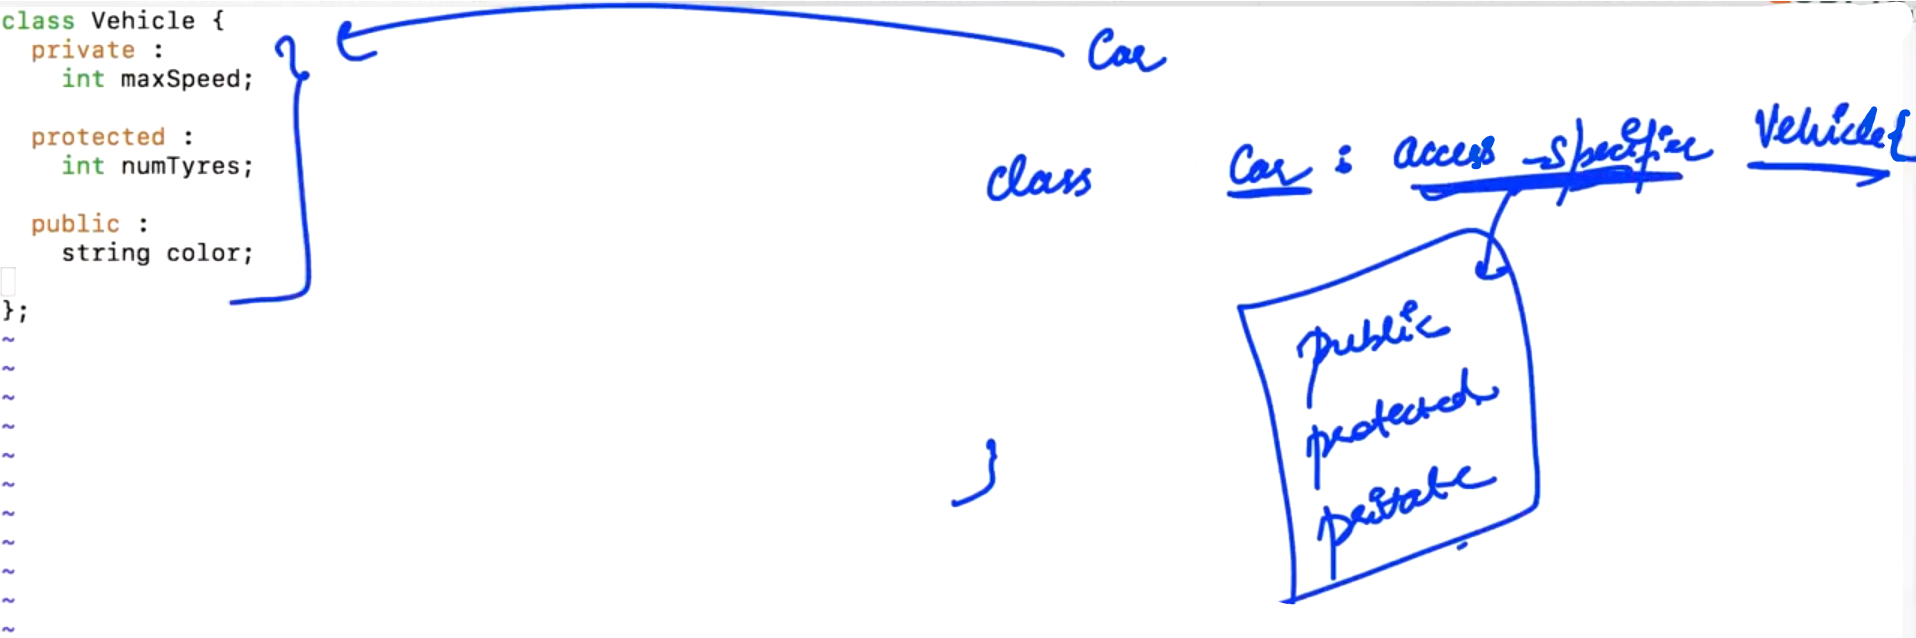 class Vehicle {
private :
int maxSpeed;
protected :
int numTyres;
public :
string color;
};
~
~
~
~
~
~
~
~
~
~
~
Car
class Car : access_specifier Vehicle{
public
protected
private
}